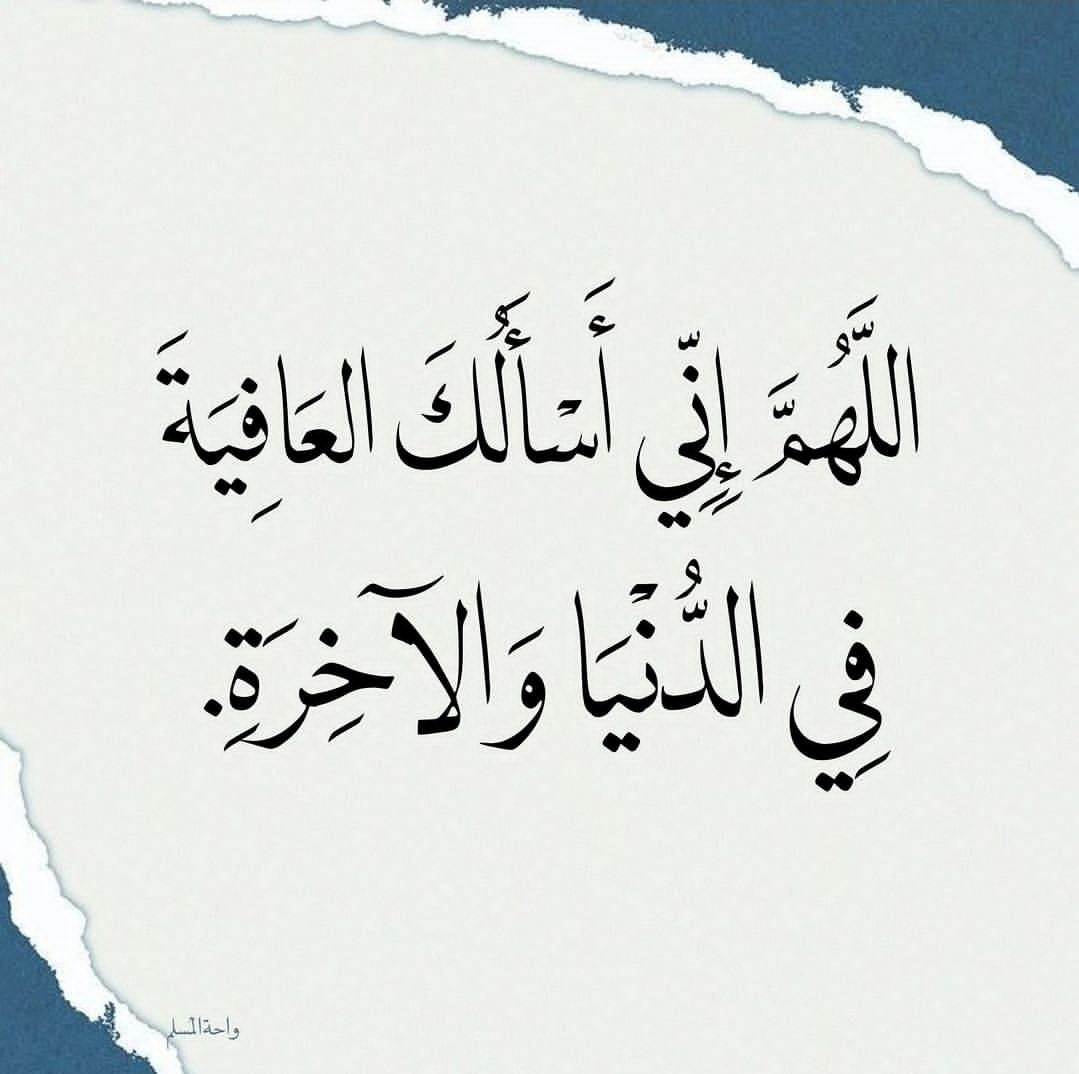 اللَّهُمَّ إِنِّي أَسْأَلُكَ العَافِيَةَ
فِي الدُّنْيَا وَالآخِرَةِ.
واحة المسلم